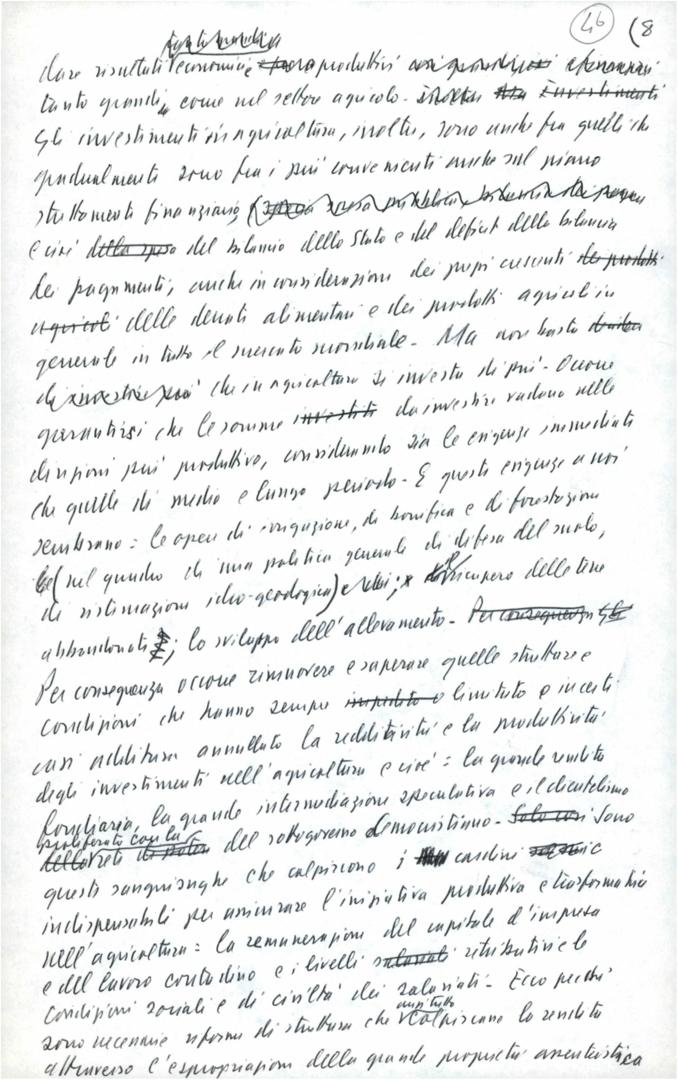 46 (8
dare risultati economici e produttivi
tanto grandi, come nel settore agricolo - investimenti
Gli investimenti in agricoltura, inoltre, sono anche fra quelli che
gradualmente sono fra i più convenienti anche sul piano
strettamente finanziario,
e cioè della spesa del bilancio dello Stato e del deficit della bilancia
dei pagamenti, anche in considerazione dei prezzi crescenti dei prodotti
agricoli delle derrate alimentari e dei prodotti agricoli in
generale in tutto il mercato mondiale - Ma non basta
che in agricoltura si investa di più - Occorre
garantirsi che le somme investiti da investire vadano nelle
direzioni più produttive, considerando sia le esigenze immediate
che quelle di medio e lungo periodo - E queste esigenze a noi
sembrano: le opere di irrigazione, di bonifica e di forestazione
(nel quadro di una politica generale di difesa del suolo,
di sistemazione idro-geologica) ; recupero delle terre
abbandonate ; lo sviluppo dell'allevamento - Per conseguenza
Per conseguenza occorre rimuovere e superare quelle strutture e
condizioni che hanno sempre impedito o limitato e in certi
casi addirittura annullato la redditività e la produttività
degli investimenti nell'agricoltura e cioè: la grande rendita
fondiaria, la grande intermediazione speculativa e il clientelismo
proliferato con la
rete del sottogoverno democristiano - Solo così Sono
queste sanguisughe che colpiscono i cardini
indispensabili per assicurare l'iniziativa produttiva e trasformatrice
nell'agricoltura: la remunerazione del capitale d'impresa
e del lavoro contadino e i livelli salariali retributivi e le
condizioni sociali e di civiltà dei salariati - Ecco perché
anzitutto
sono necessarie riforme di struttura che colpiscano la rendita
attraverso l'espropriazione della grande proprietà assenteistica